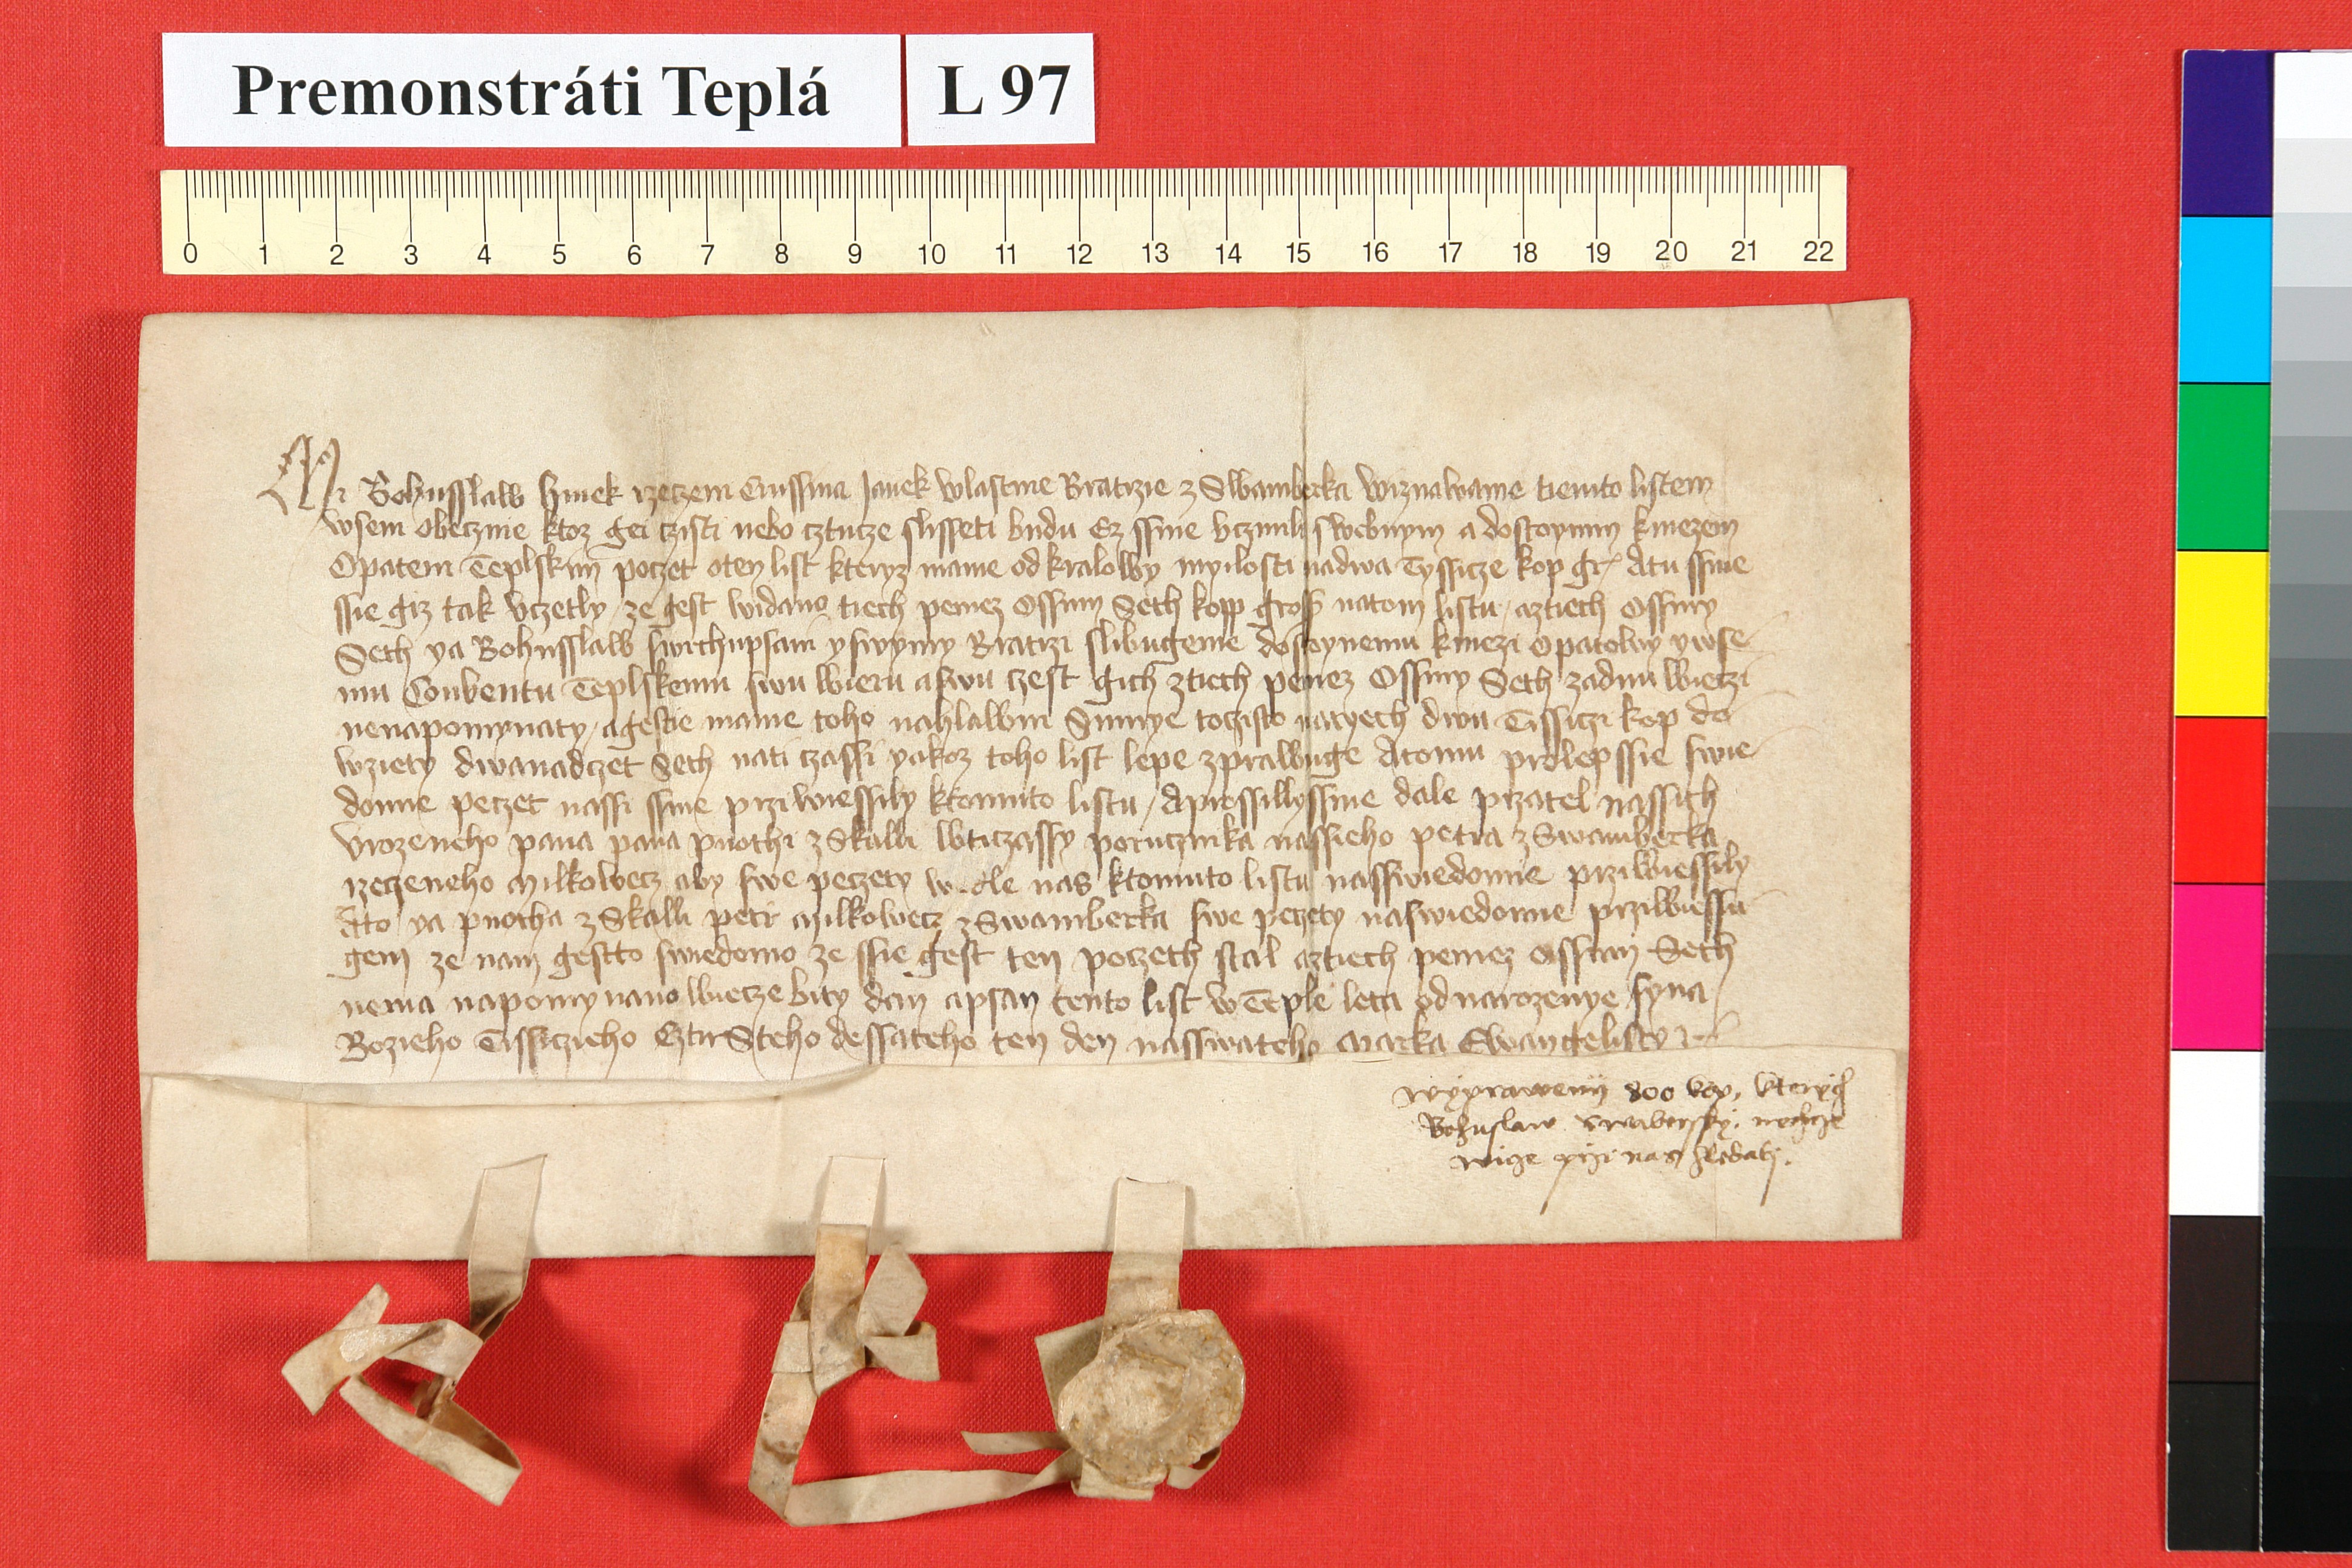 Premonstráti Teplá L 97
0 1 2 3 4 5 6 7 8 9 10 11 12 13 14 15 16 17 18 19 20 21 22
My Bohusslaw hinek rzeczeni Crussina Janek wlastnie Bratrzie z Swamberka wiznawame tiemto listem
wsem obecznie ktoz gei czisti nebo cztucze slisseti budu Ez ssme vczinili swebnym a dostoynim kniezem
Opatem Teplskim poczet oten list kteryz mame od kralowy myilosti nadwa Tyssicze kop gr Atu ssme
ssie giz tak vczetly ze gest widano tiech peniez Ossmy Seth kopp gross natom listu aztiech Ossmy
Seth ya Bohusslaw swrchupsani yswymy Bratrzi slibugeme dostoynemu kniezi Opatowy ywse
mu Conventu Teplskemu swu wieru aswu czest gich ztiech peniez Ossmy Seth zadnu wieczi
nenapomynaty agestie mame toho nahlawni Summye toczisto natyech dwu Tissiczi kop do
wziety dwanadczet Seth nati czassi yakoz toho list lepe zprawuge Atomu prolepssie swie
domie peczet nassi ssme prziwiessily ktomuto listu Aprossillyssme dale przatel nassich
Vrozeneho pana pana pnothi z Skalli wticzassy porucznika nassieho petra z Swamberka
rzeczeneho Milkowecz aby swe peczety wedle nas ktomuto listu nasswiedomie przitwiessily
Ato ya pnotha z Skalli petr Milkowecz z Swamberka swe peczety naswiedomie przitwiessu
gem ze nam gestto swiedomo ze ssie gest ten poczeth stal aztiech peniez Ossmi Seth
nema napomynano wiecze bity dan apsan tento list wTeple leta od narozenye syna
Bozieho Tissiczieho CztirSteho dessateho ten den nasswateho Marka Ewangelisty
wypraweny 800 kop, kterych
Bohuslaw Swabersky nechze
wicze przi nas hledati.